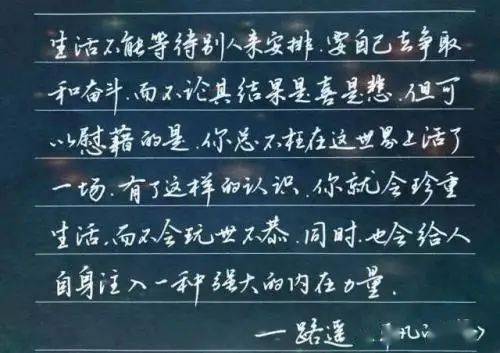 生活不能等待别人来安排.要自己去争取
和奋斗.而不论其结果是喜是悲.但可
以慰藉的是.你总不枉在这世界上活了
一场.有了这样的认识.你就会珍重
生活.而不会玩世不恭.同时.也会给人
自身注入一种强大的内在力量.
一路遥